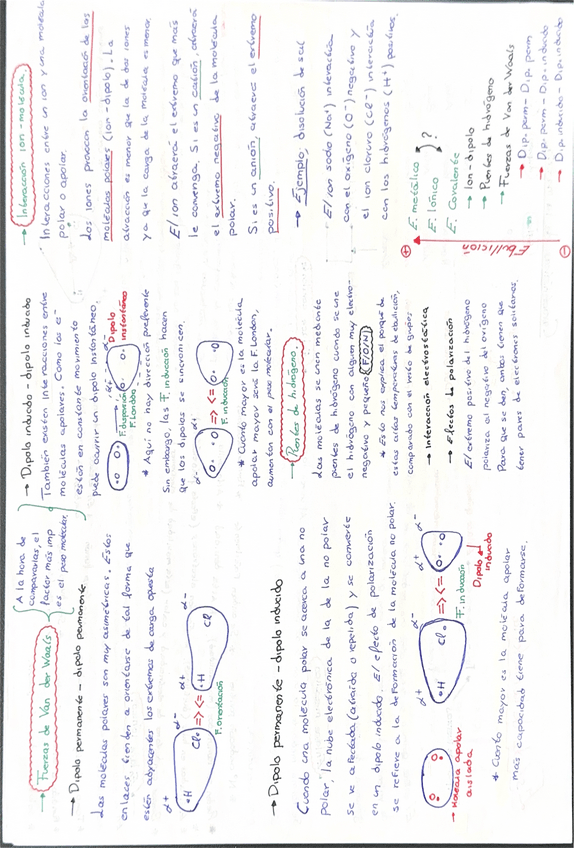 → Fuerzas de Van der Waals
A la hora de
compararlas, el
factor más imp
es el peso molecular.
→ Dipolo permanente - dipolo permanente
Las moléculas polares son muy asimétricas. Estos
enlaces tienden a orientarse de tal forma que
estén adyacentes los extremos de carga opuesta
α+ α- α+ α-
•H Cl• => <= •H Cl
F. orientación
→ Dipolo permanente - dipolo inducido
Cuando una molécula polar se acerca a una no
polar, la nube electrónica de la de la no polar
se ve afectada (atraída o repelida) y se convierte
en un dipolo inducido. El efecto de polarización
se refiere a la deformación de la molécula no polar.
α+ α- α+ α-
•H Cl• => <=
F. inducción
→ Molécula apolar
aislada
Dipolo
inducido
* Cuanto mayor es la molécula apolar
más capacidad tiene para deformarse.
→ Dipolo inducido - dipolo inducido
También existen interacciones entre
moléculas apolares. Como los e
están en constante movimiento
puede ocurrir un dipolo instantáneo.
F. dispersión
F. London
α+ α-
Dipolo
instantáneo
* Aquí no hay dirección preferente
Sin embargo, las F. inducción hacen
que los dipolos se sincronicen.
α- α+
=> <=
F. inducción
* Cuanto mayor es la molécula
apolar mayor será la F. London,
aumentan con el peso molecular.
→ Puentes de hidrógeno.
Las moléculas se unen mediante
puentes de hidrógeno cuando se une
el hidrógeno con alguien muy electro-
negativo y pequeño (F/O/N)
* Esto nos explica el porqué de
estas altas temperaturas de ebullición,
comparado con el resto de grupos
→ Interacción electrostática
→ Efectos de polarización
El extremo positivo del hidrógeno
polariza al negativo del oxígeno
Para que se den, ambos tienen que
tener pares de electrones solitarios.
→ Interacción ion-molécula.
Interacciones entre un ion y una molécula
polar o apolar.
Los iones provocan la orientación de las
moléculas polares (ion-dipolo). La
atracción es menor que la de dos iones
ya que la carga de la molécula es menor.
El ion atraerá el extremo que más
le convenga. Si es un catión, atraerá
el extremo negativo de la molécula
polar.
Si es un anión, atraerá el extremo
positivo.
→ Ejemplo: disolución de sal
El ion sodio (Na+) interactúa
con el oxígeno (O-) negativo y
el ion cloruro (Cl-) interactúa
con los hidrógenos (H+) positivos.
+
E. metálico
E. Iónico
?
E. Covalente
→ Ion-dipolo
→ Puentes de hidrógeno
→ Fuerzas de Van der Waals
→ Dip. perm - Dip. perm
→ Dip. perm - Dip. inducido
→ Dip. inducido - Dip. inducido
Ebullición
-